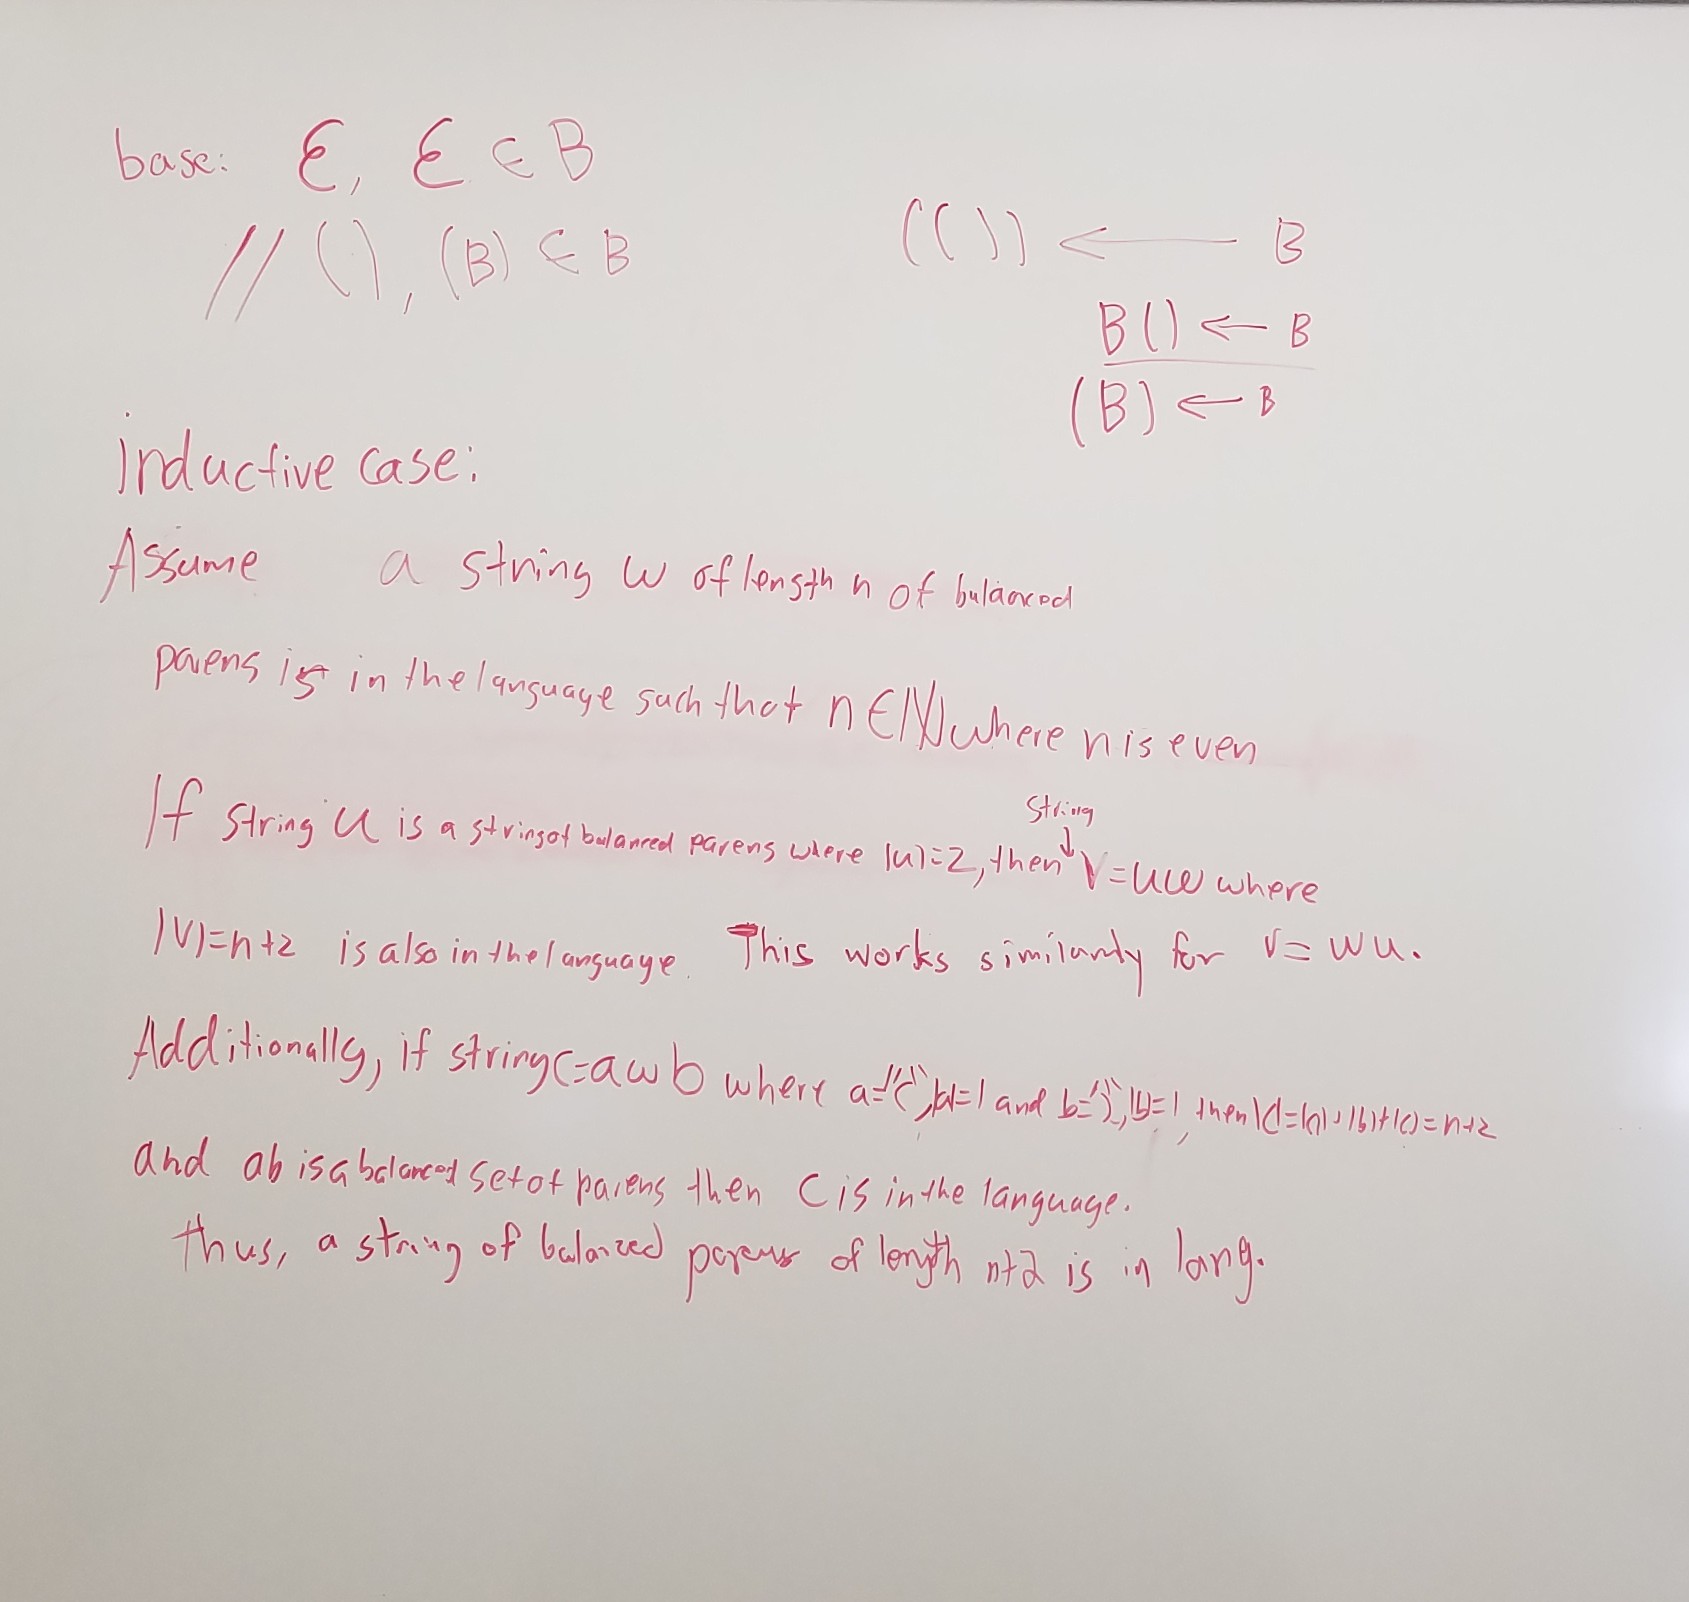 base: ℇ, ℇ ∈ B
// (), (B) ∈ B
(()) ← B
B() ← B
(B) ← B
inductive case:
Assume a string w of length n of balanced
parens is in the language such that n ∈ ℕ where n is even
string
If string u is a string of balanced parens where |u|=2, then ↓ V=uw where
|V|=n+2 is also in the language. This works similarly for V= wu.
Additionally, if string c=awb where a="(", |a|=1 and b=")", |b|=1, then |c|=|n|+|b|+|c|=n+2
and ab is a balanced set of parens then C is in the language.
thus, a string of balanced parens of length n+2 is in lang.